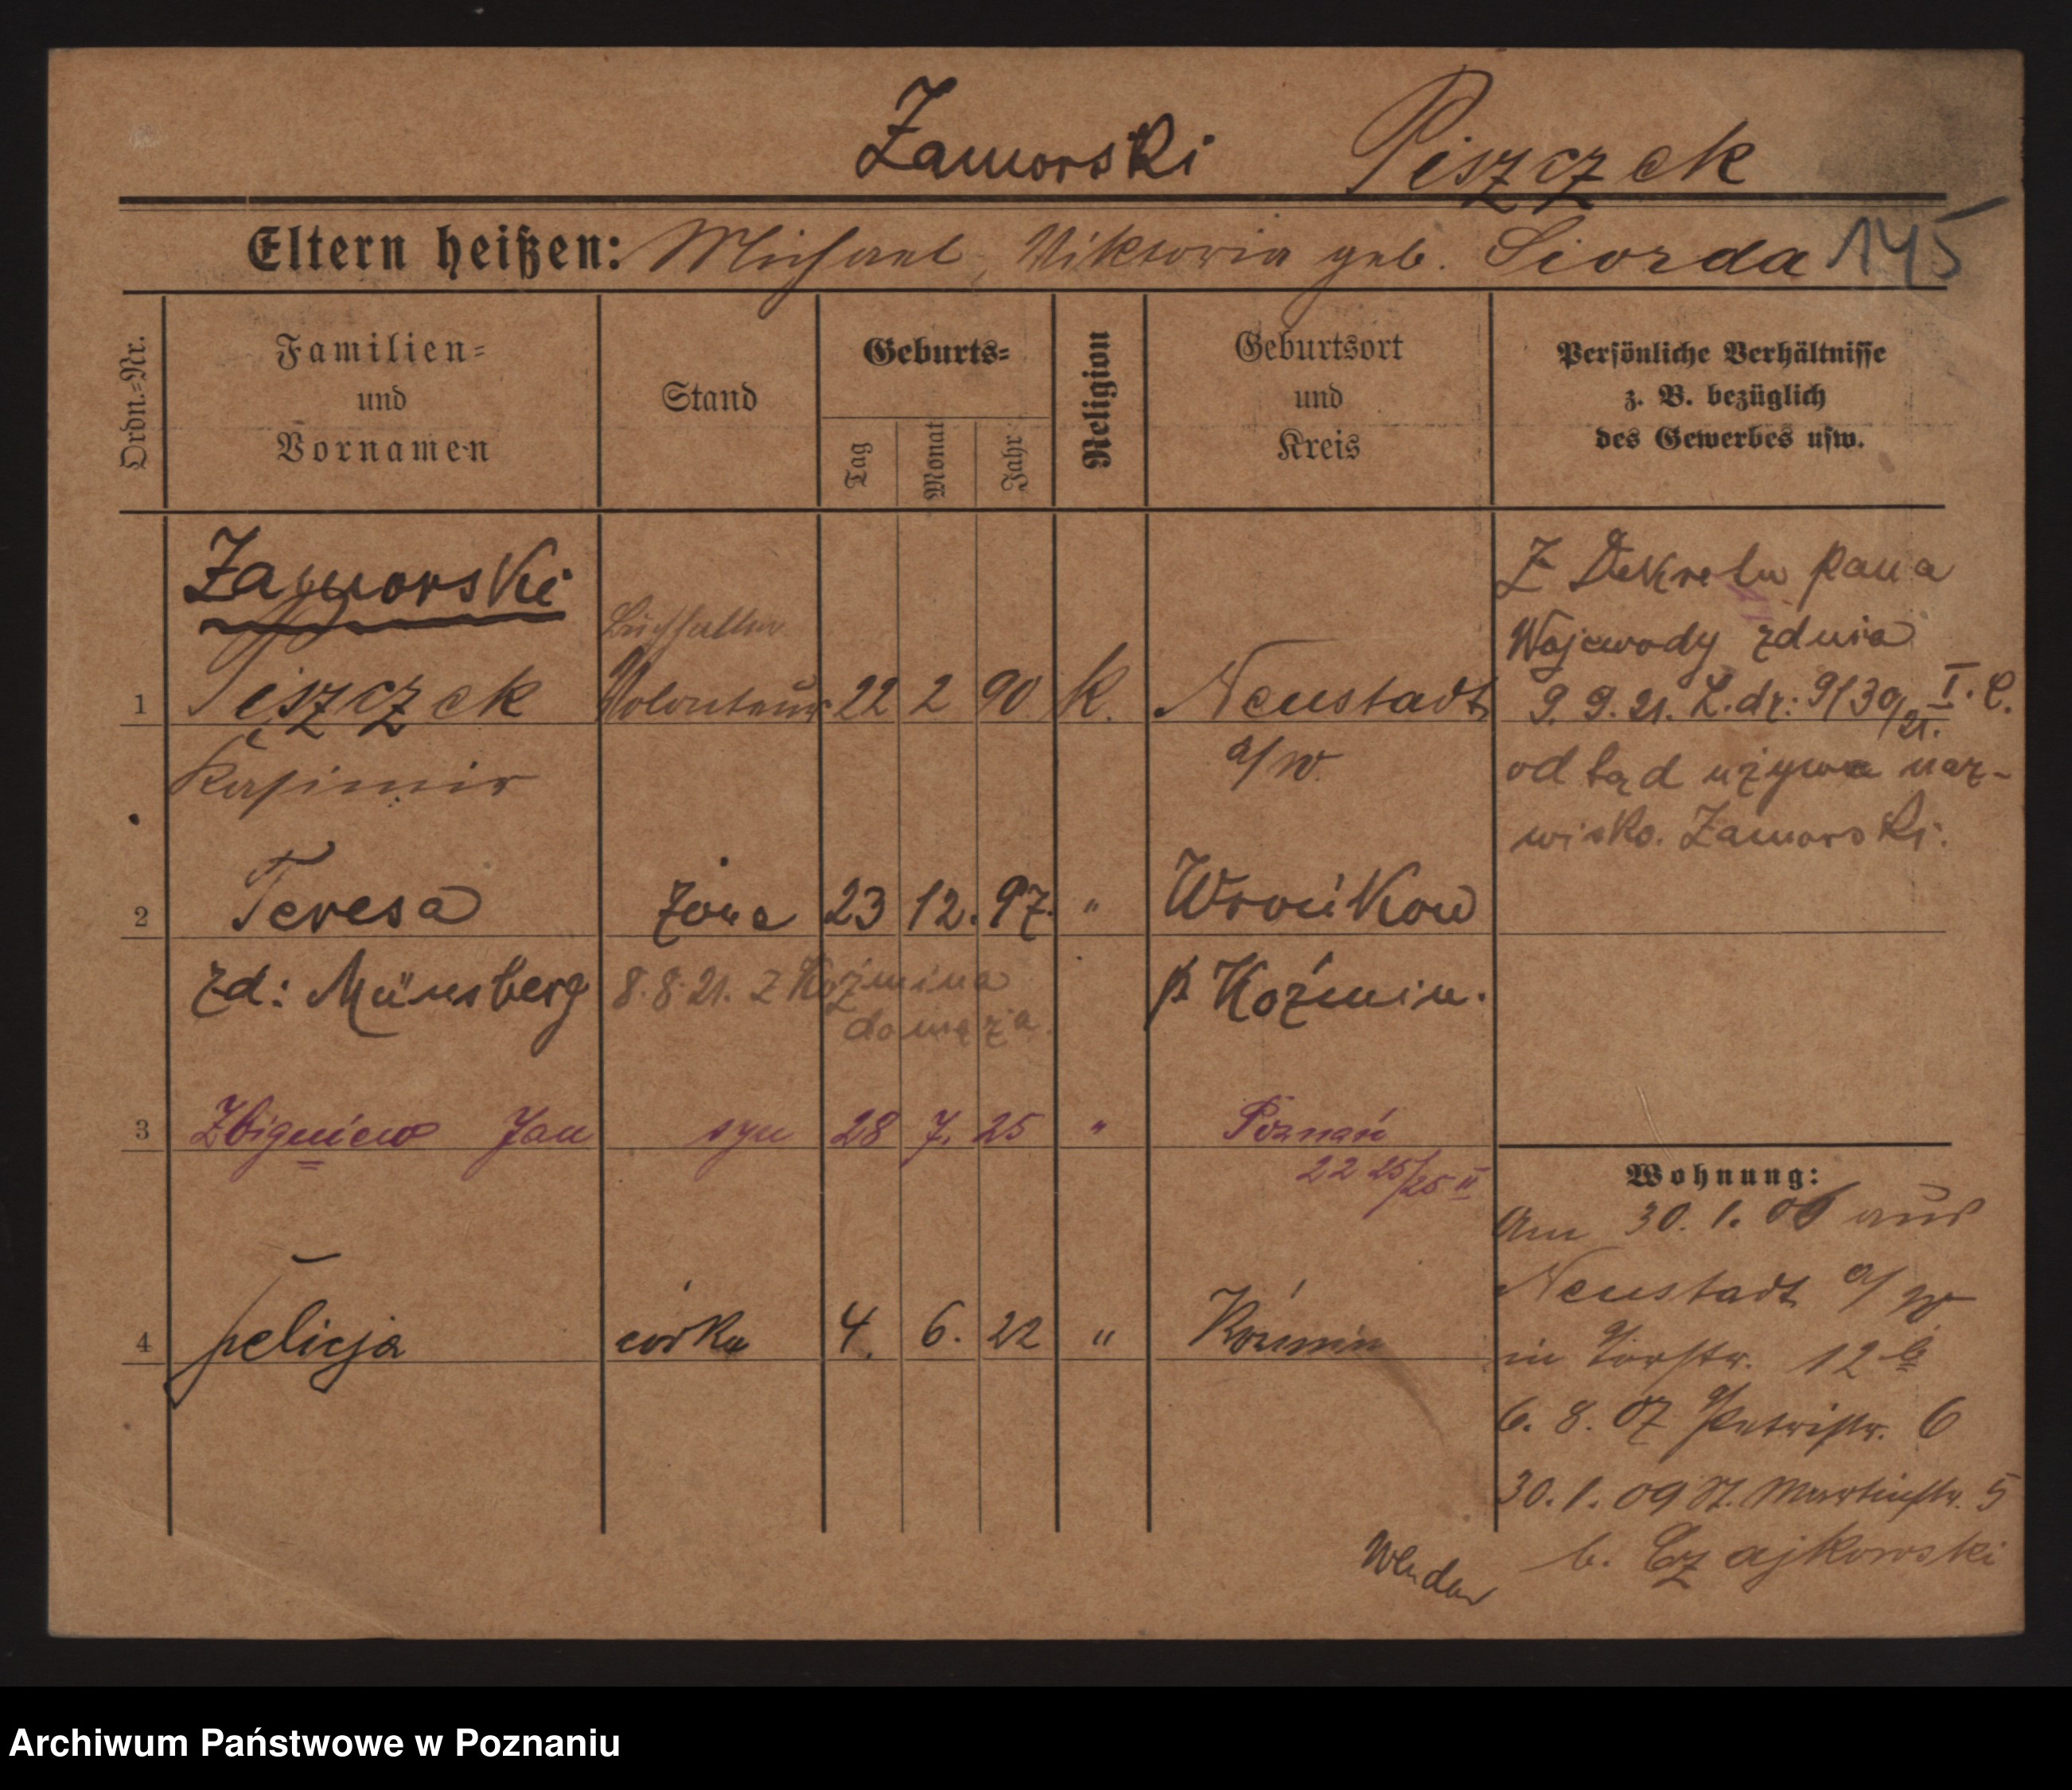 Zamorski Piszczek
Eltern heißen: Michael, Viktoria geb. Siorda 145
Ordn.=Nr.
Familien=
und
Vornamen
Stand
Geburts=
Tag
Monat
Jahr
Religion
Geburtsort
und
Kreis
Persönliche Verhältnisse
z. B. bezüglich
des Gewerbes usw.
Zamorski
Buchhalter
1 Piszczek Volonteur 22 2 90 k. Neustadt
Kasimir a/W.
2 Teresa żona 23 12. 97. " Wronków
zd: Münsberg 8.8.21. z Koźmina p Koźmin.
do męża.
3 Zbigniew Jan syn 28 7. 25 " Poznań
22 25/25 II
4 Felicja córka 4. 6. 22 " Koźmin
Z Dekretu pana
Wojewody zdnia
9. 9. 21. L.dz: 9130/21. I. C.
odtąd używa naz-
wisko. Zamorski.
Wohnung:
Am 30. 1. 06 aus
Neustadt a/W
in Torstr. 12 b
6. 8. 07 Petristr. 6
30. 1. 09 St. Martinstr. 5
b. Czajkowski
Wenden
Archiwum Państwowe w Poznaniu